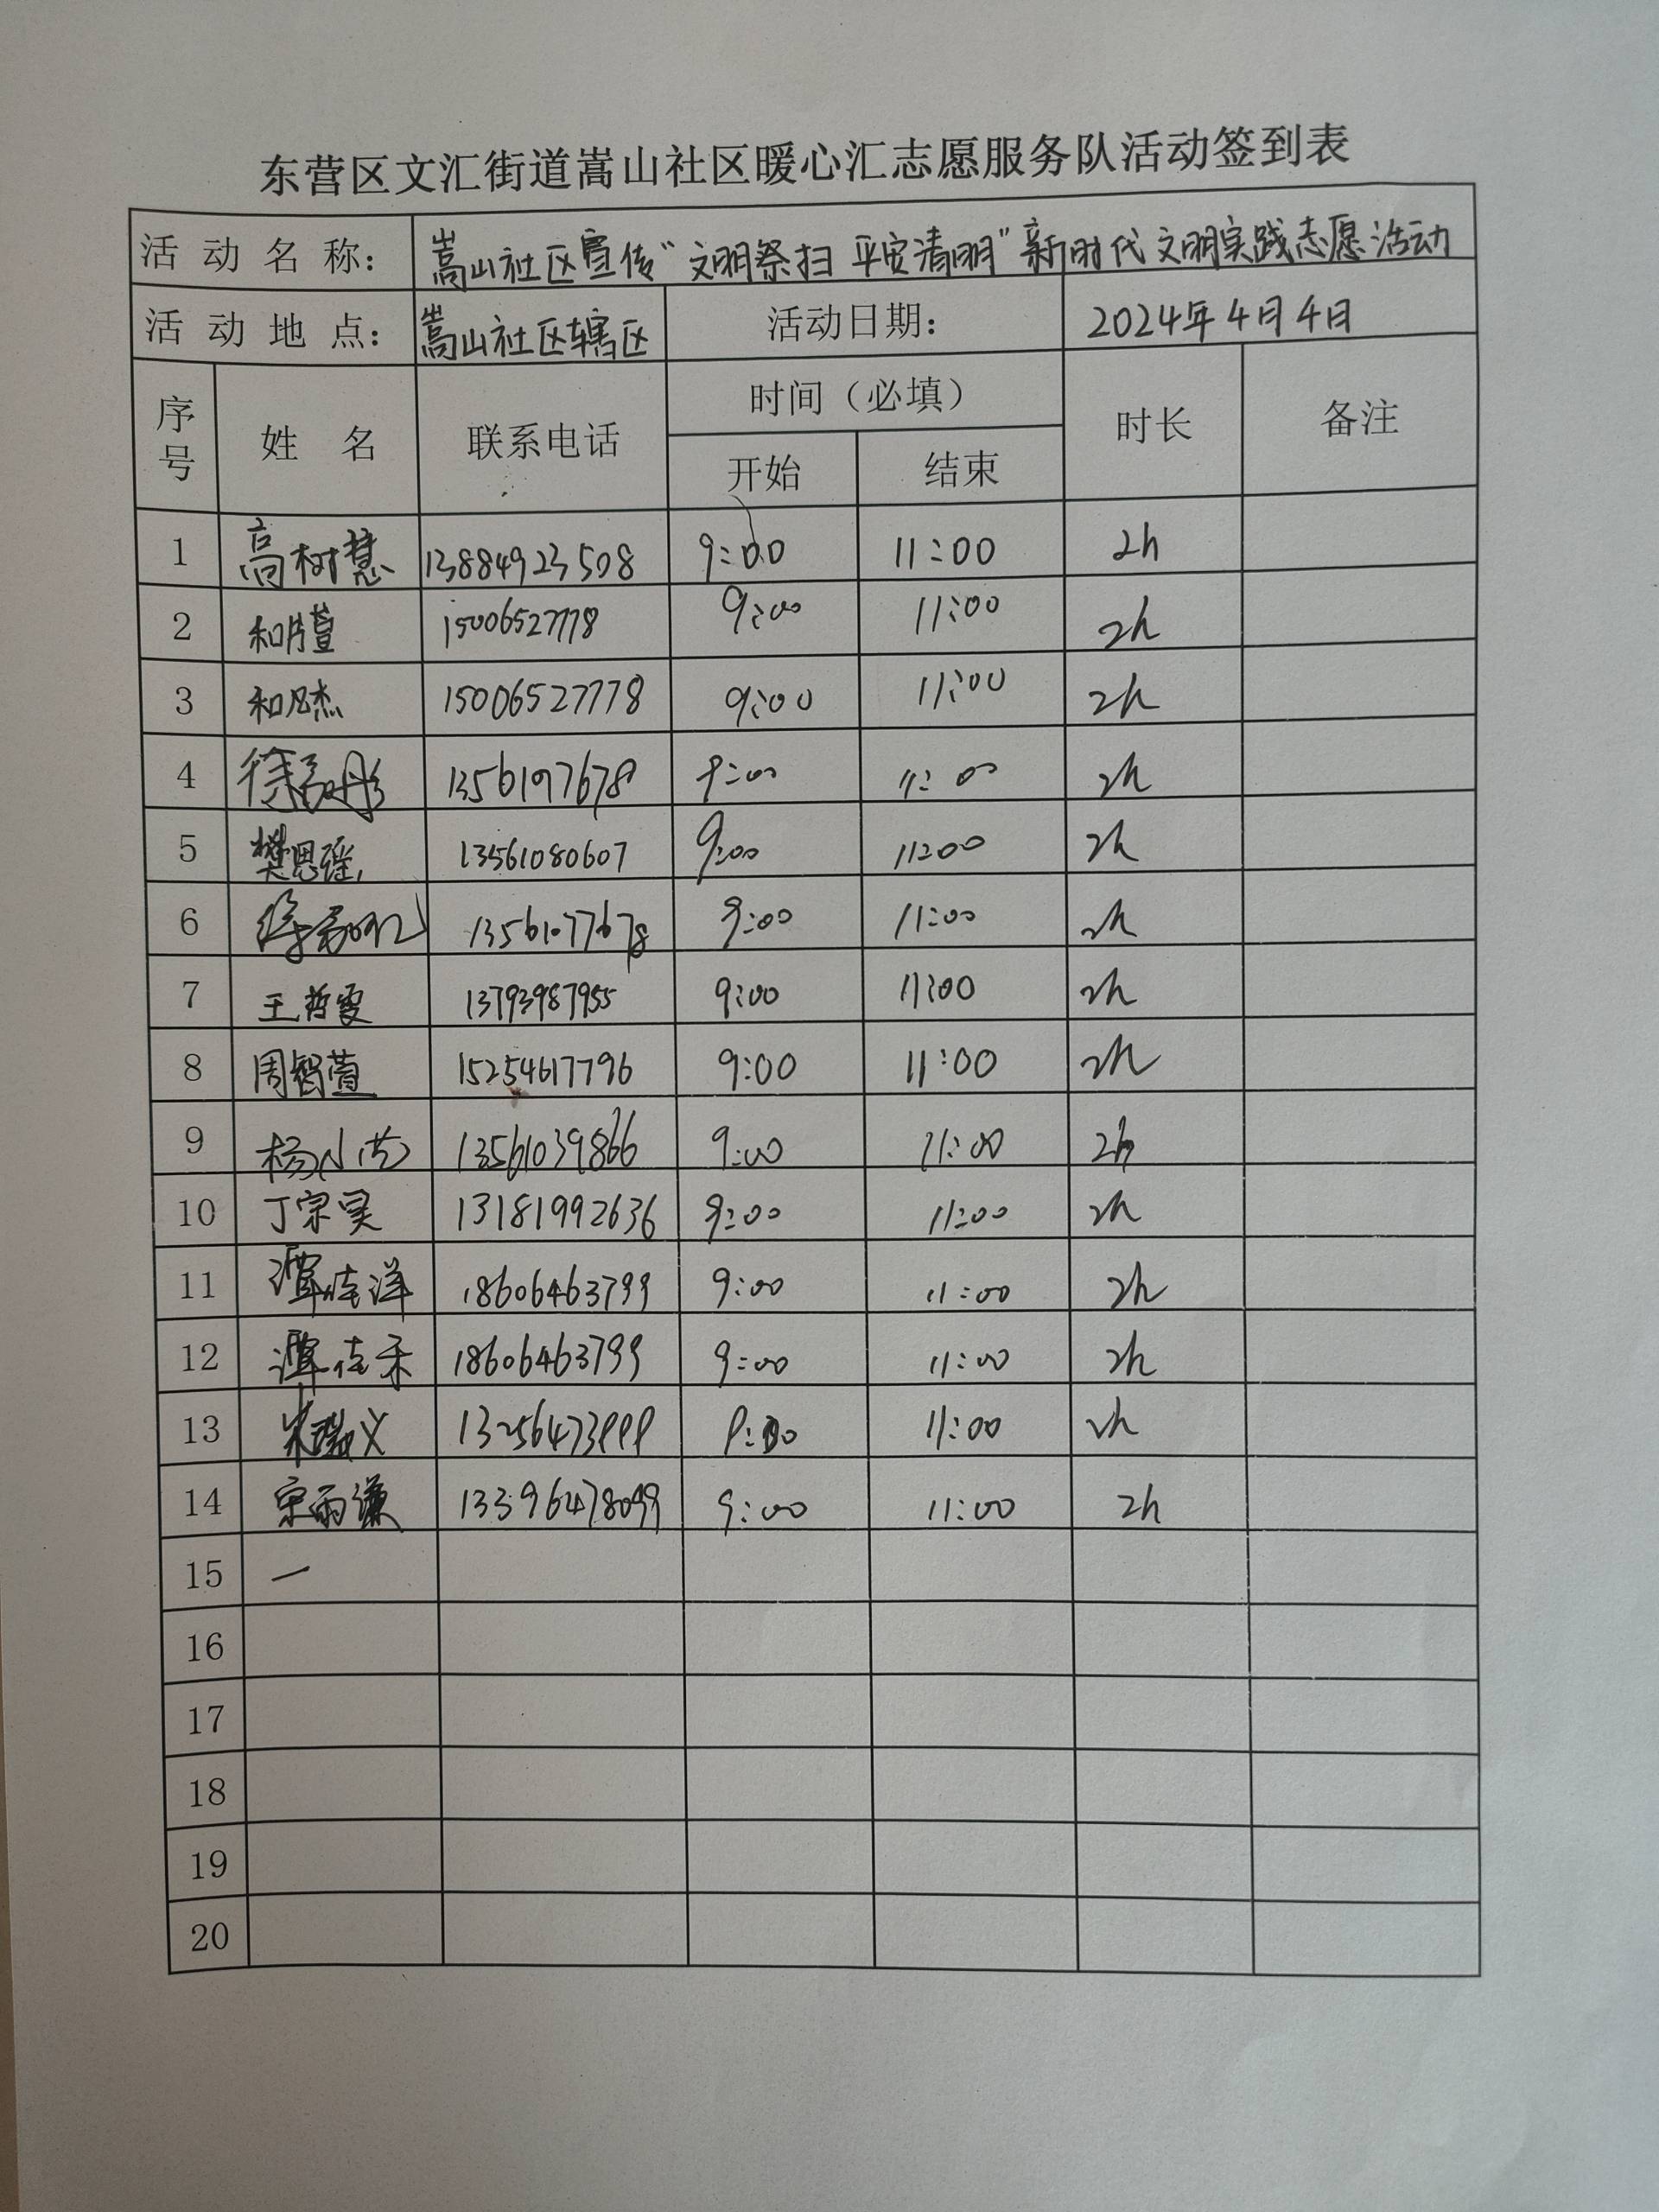 东营区文汇街道嵩山社区暖心汇志愿服务队活动签到表
活动名称： 嵩山社区宣传“文明祭扫 平安清明”新时代文明实践志愿活动
活动地点： 嵩山社区辖区 活动日期： 2024年4月4日
序号 姓名 联系电话 时间（必填） 时长 备注
开始 结束
1 高树慧 13884923508 9:00 11:00 2h
2 15006527778 9:00 11:00 2h
3 15006527778 9:00 11:00 2h
4 9:00 11:00 2h
5 樊思瑶 13561080607 9:00 11:00 2h
6 9:00 11:00 2h
7 王哲雯 13793987955 9:00 11:00 2h
8 周智萱 15254617796 9:00 11:00 2h
9 13561039866 9:00 11:00 2h
10 丁宗昊 13181992636 9:00 11:00 2h
11 谭佳洋 18606463799 9:00 11:00 2h
12 谭佳禾 18606463799 9:00 11:00 2h
13 13256473999 9:00 11:00 2h
14 宋雨谦 13396478099 9:00 11:00 2h
15 一
16
17
18
19
20